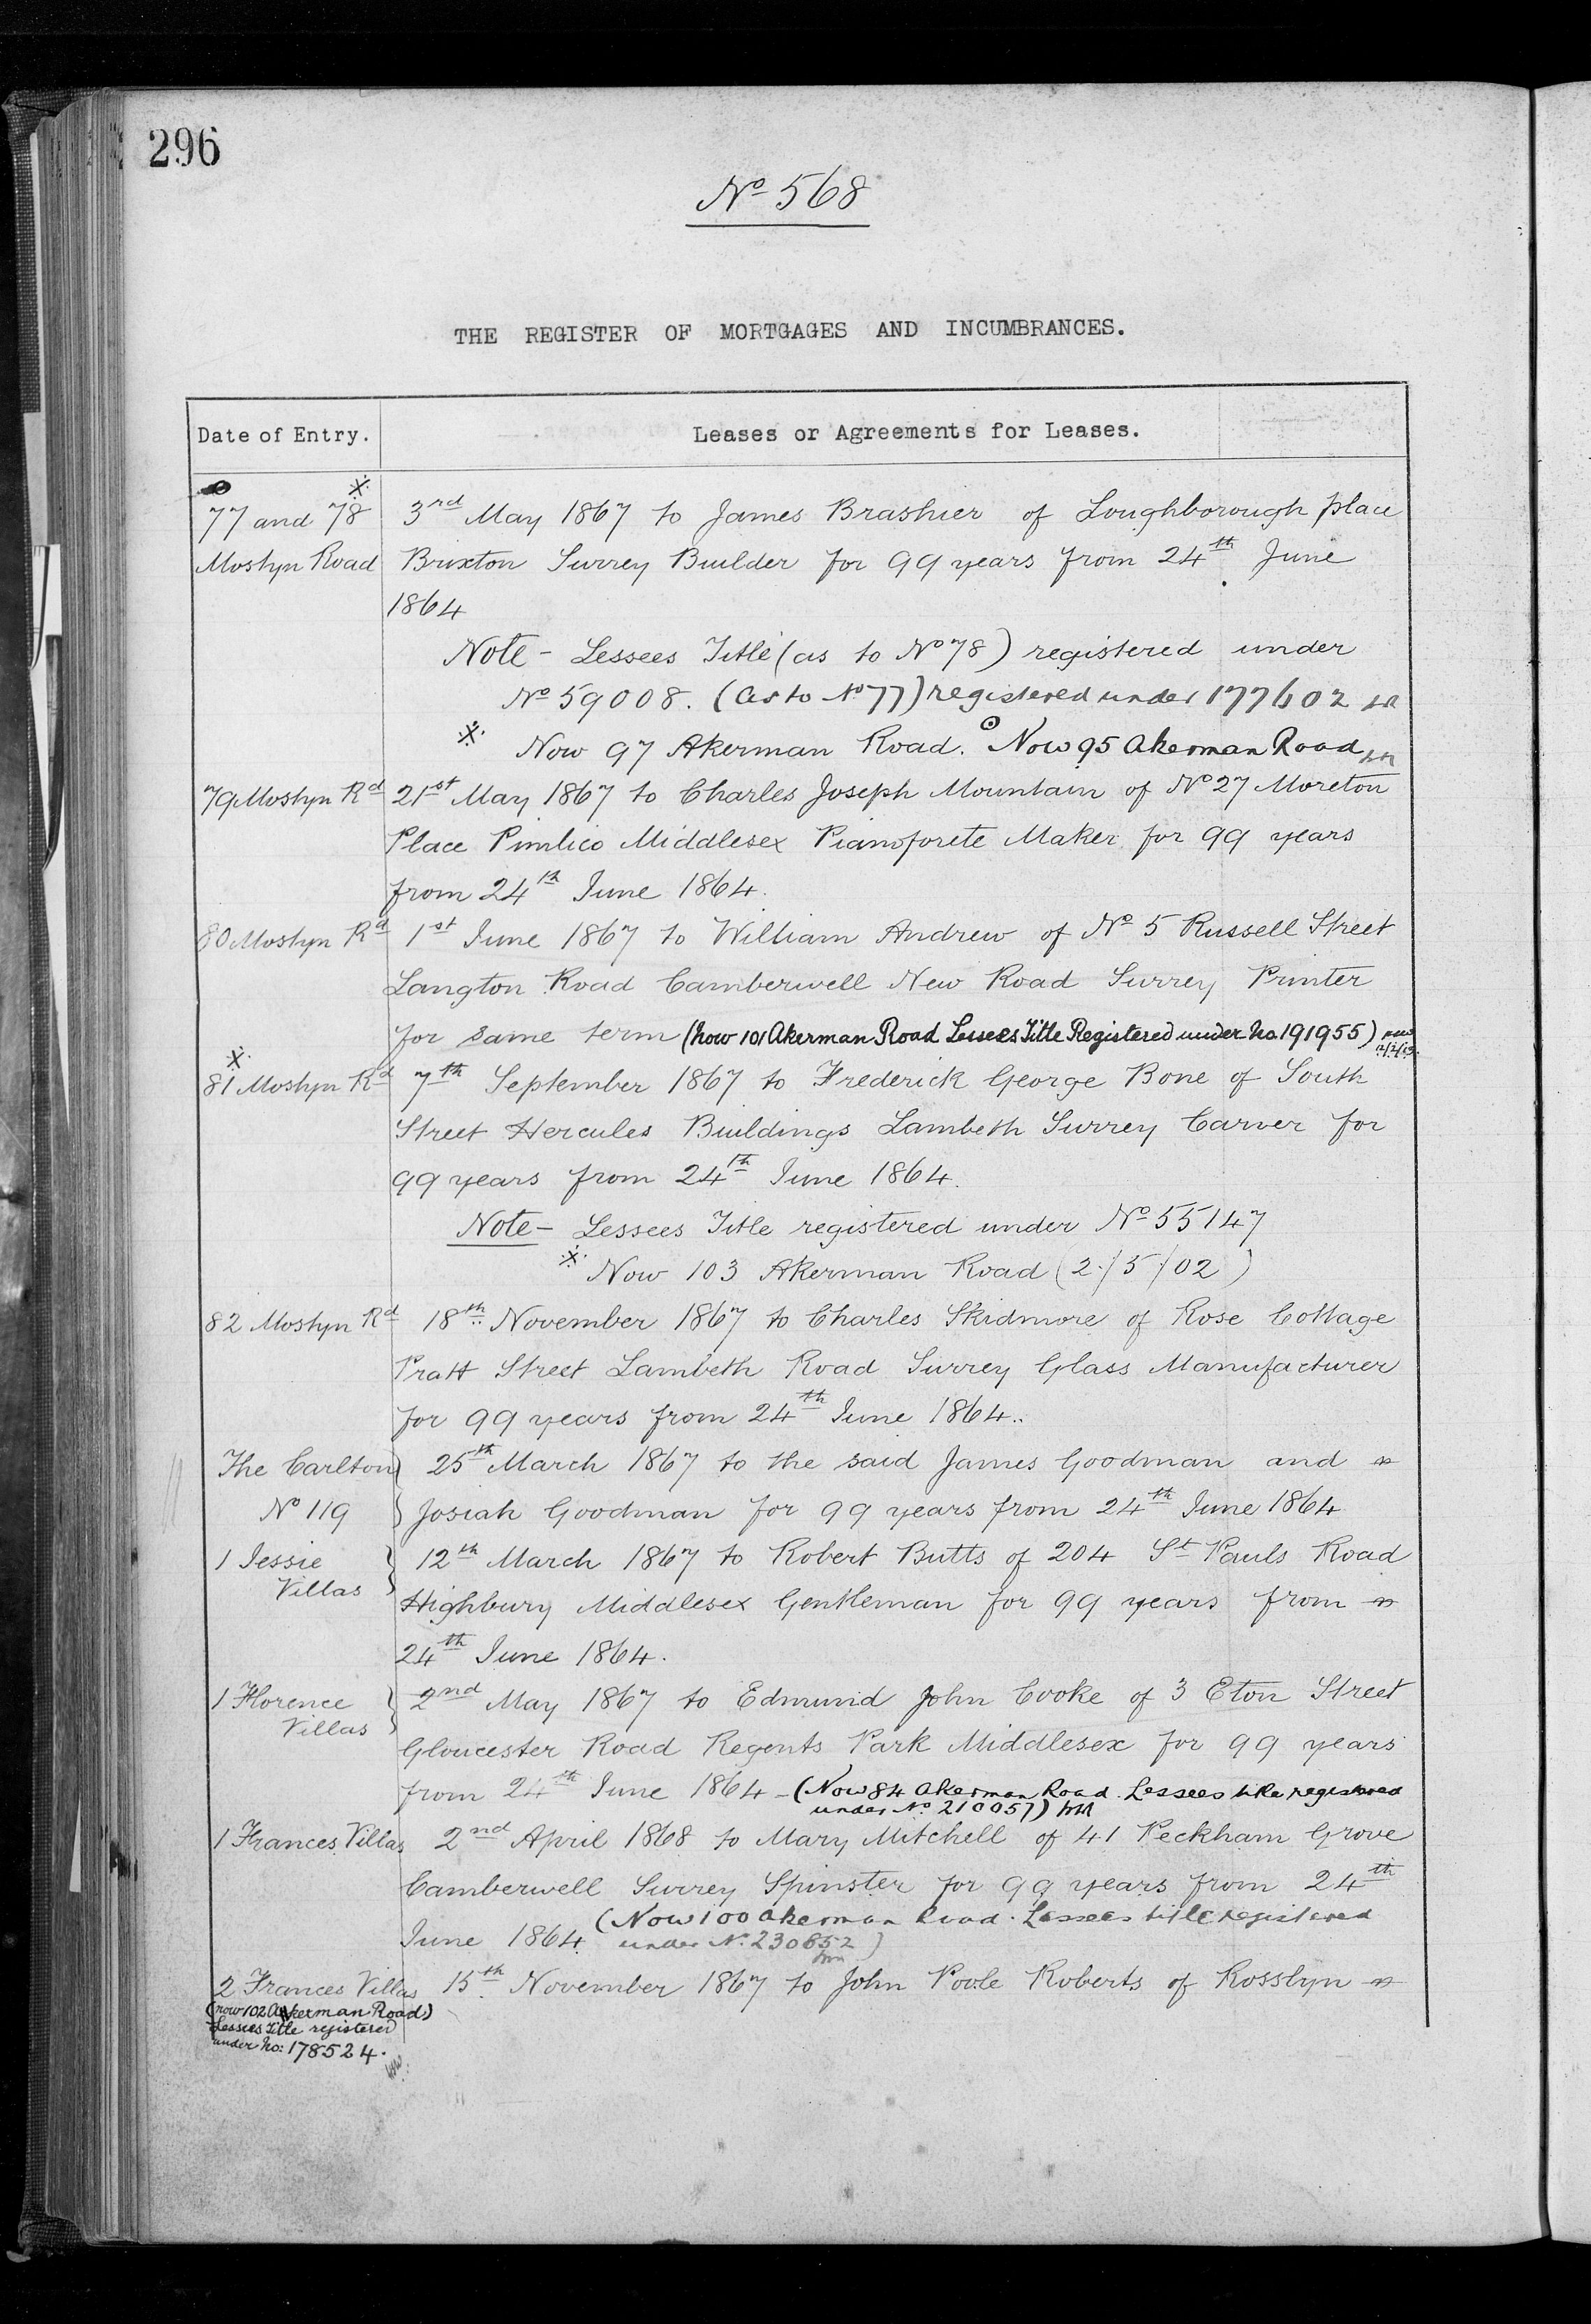 296
No 568
THE REGISTER OF MORTGAGES AND INCUMBRANCES.
Date of Entry.
Leases or Agreements for Leases.
77 and 78 Mostyn Road
3rd May 1867 to James Brashier of Loughborough place
Brixton Surrey Builder for 99 years from 24th June
1864
Note - Lessees Title (as to No 78) registered under
No 59008. (As to No 77) registered under 177602
※ Now 97 Akerman Road. ⊙ Now 95 Akerman Road
79 Mostyn Rd
21st May 1867 to Charles Joseph Mountain of No 27 Moreton
Place Pimlico Middlesex Pianoforete Maker for 99 years
from 24th June 1864.
80 Mostyn Rd
1st June 1867 to William Andrew of No 5 Russell Street
Langton Road Camberwell New Road Surrey Printer
for same term (now 101 Akerman Road Lessees Title Registered under No. 191955)
※
81 Mostyn Rd
7th September 1867 to Frederick George Bone of South
Street Hercules Buildings Lambeth Surrey Carver for
99 years from 24th June 1864.
Note - Lessees Title registered under No 55147
※ Now 103 Akerman Road (2/5/02)
82 Mostyn Rd
18th November 1867 to Charles Skidmore of Rose Cottage
Pratt Street Lambeth Road Surrey Glass Manufacturer
for 99 years from 24th June 1864.
The Carlton
No 119
25th March 1867 to the said James Goodman and
Josiah Goodman for 99 years from 24th June 1864
1 Jessie
Villas
12th March 1867 to Robert Butts of 204 St Pauls Road
Highbury Middlesex Gentleman for 99 years from
24th June 1864.
1 Florence
Villas
2nd May 1867 to Edmund John Cooke of 3 Eton Street
Gloucester Road Regents Park Middlesex for 99 years
from 24th June 1864 - (Now 84 Akerman Road. Lessees title registered
under No. 210057)
1 Frances Villas
2nd April 1868 to Mary Mitchell of 41 Peckham Grove
Camberwell Surrey Spinster for 99 years from 24th
June 1864. (Now 100 Akerman Road. Lessees title registered
under No. 230852)
2 Frances Villas
(now 102 Akerman Road)
Lessees Title registered
under No: 178524.
15th November 1867 to John Poole Roberts of Rosslyn